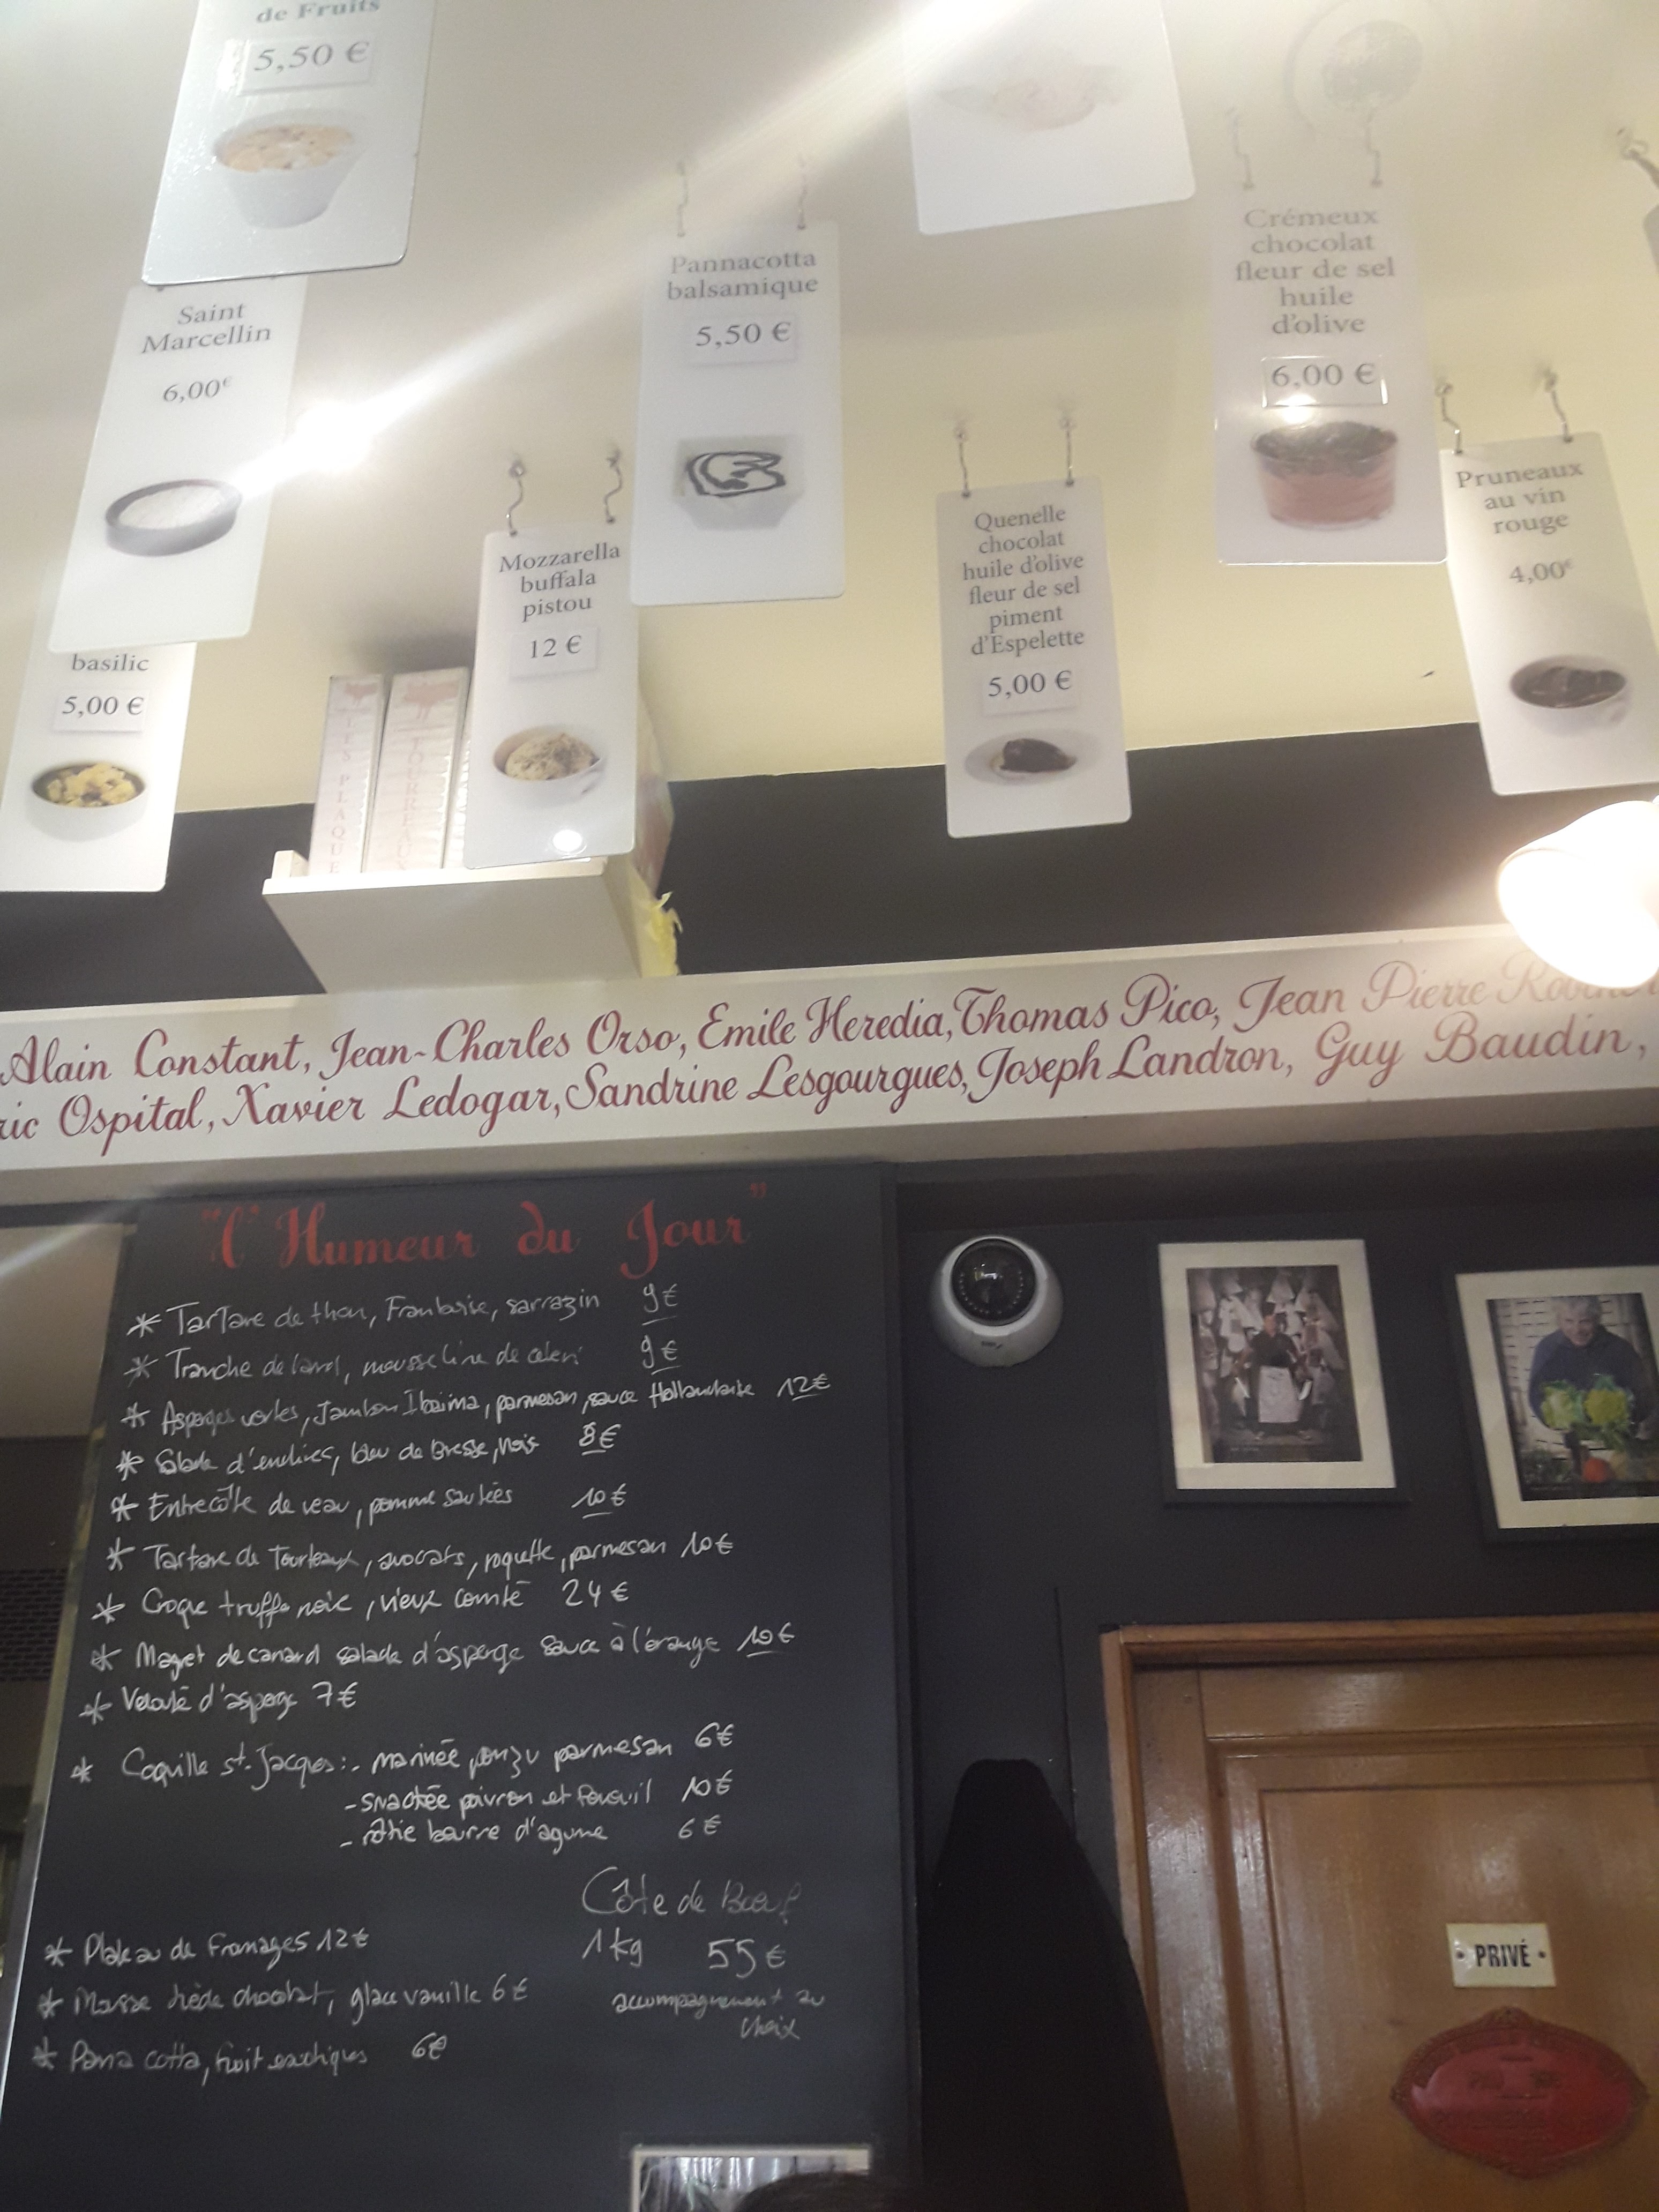 de Fruits
5,50 €
Saint
Marcellin
6,00€
basilic
5,00 €
Mozzarella
buffala
pistou
12 €
Pannacotta
balsamique
5,50 €
Quenelle
chocolat
huile d'olive
fleur de sel
piment
d'Espelette
5,00 €
Crémeux
chocolat
fleur de sel
huile
d'olive
6,00 €
Pruneaux
au vin
rouge
4,00€
LES PLAQUE
TOURREAUX
Alain Constant, Jean-Charles Orso, Emile Heredia, Thomas Pico, Jean Pierre
ric Ospital, Xavier Ledogar, Sandrine Lesgourgues, Joseph Landron, Guy Baudin,
"l'Humeur du Jour"
* Tartare de thon, Framboise, sarrazin 9€
* Tranche de lard, mousseline de celeri 9€
* Asperges vertes, Jambon Ibaïma, parmesan, sauce Hollandaise 12€
* Salade d'endives, bleu de Bresse, Noix 8€
* Entrecôte de veau, pomme sautées 10€
* Tartare de Tourteaux, avocats, roquette, parmesan 10€
* Croque truffe noire, vieux comté 24€
* Magret de canard salade d'asperge sauce à l'orange 10€
* Velouté d'asperge 7€
* Coquille st-Jacques: - marinée ponzu parmesan 6€
- snackée poivron et fenouil 10€
- rôtie beurre d'agrume 6€
Côte de Bœuf
1kg 55€
accompagnement au
choix
* Plateau de Fromages 12€
* Mousse tiède chocolat, glace vanille 6€
* Pana cotta, fruit exotiques 6€
PRIVÉ